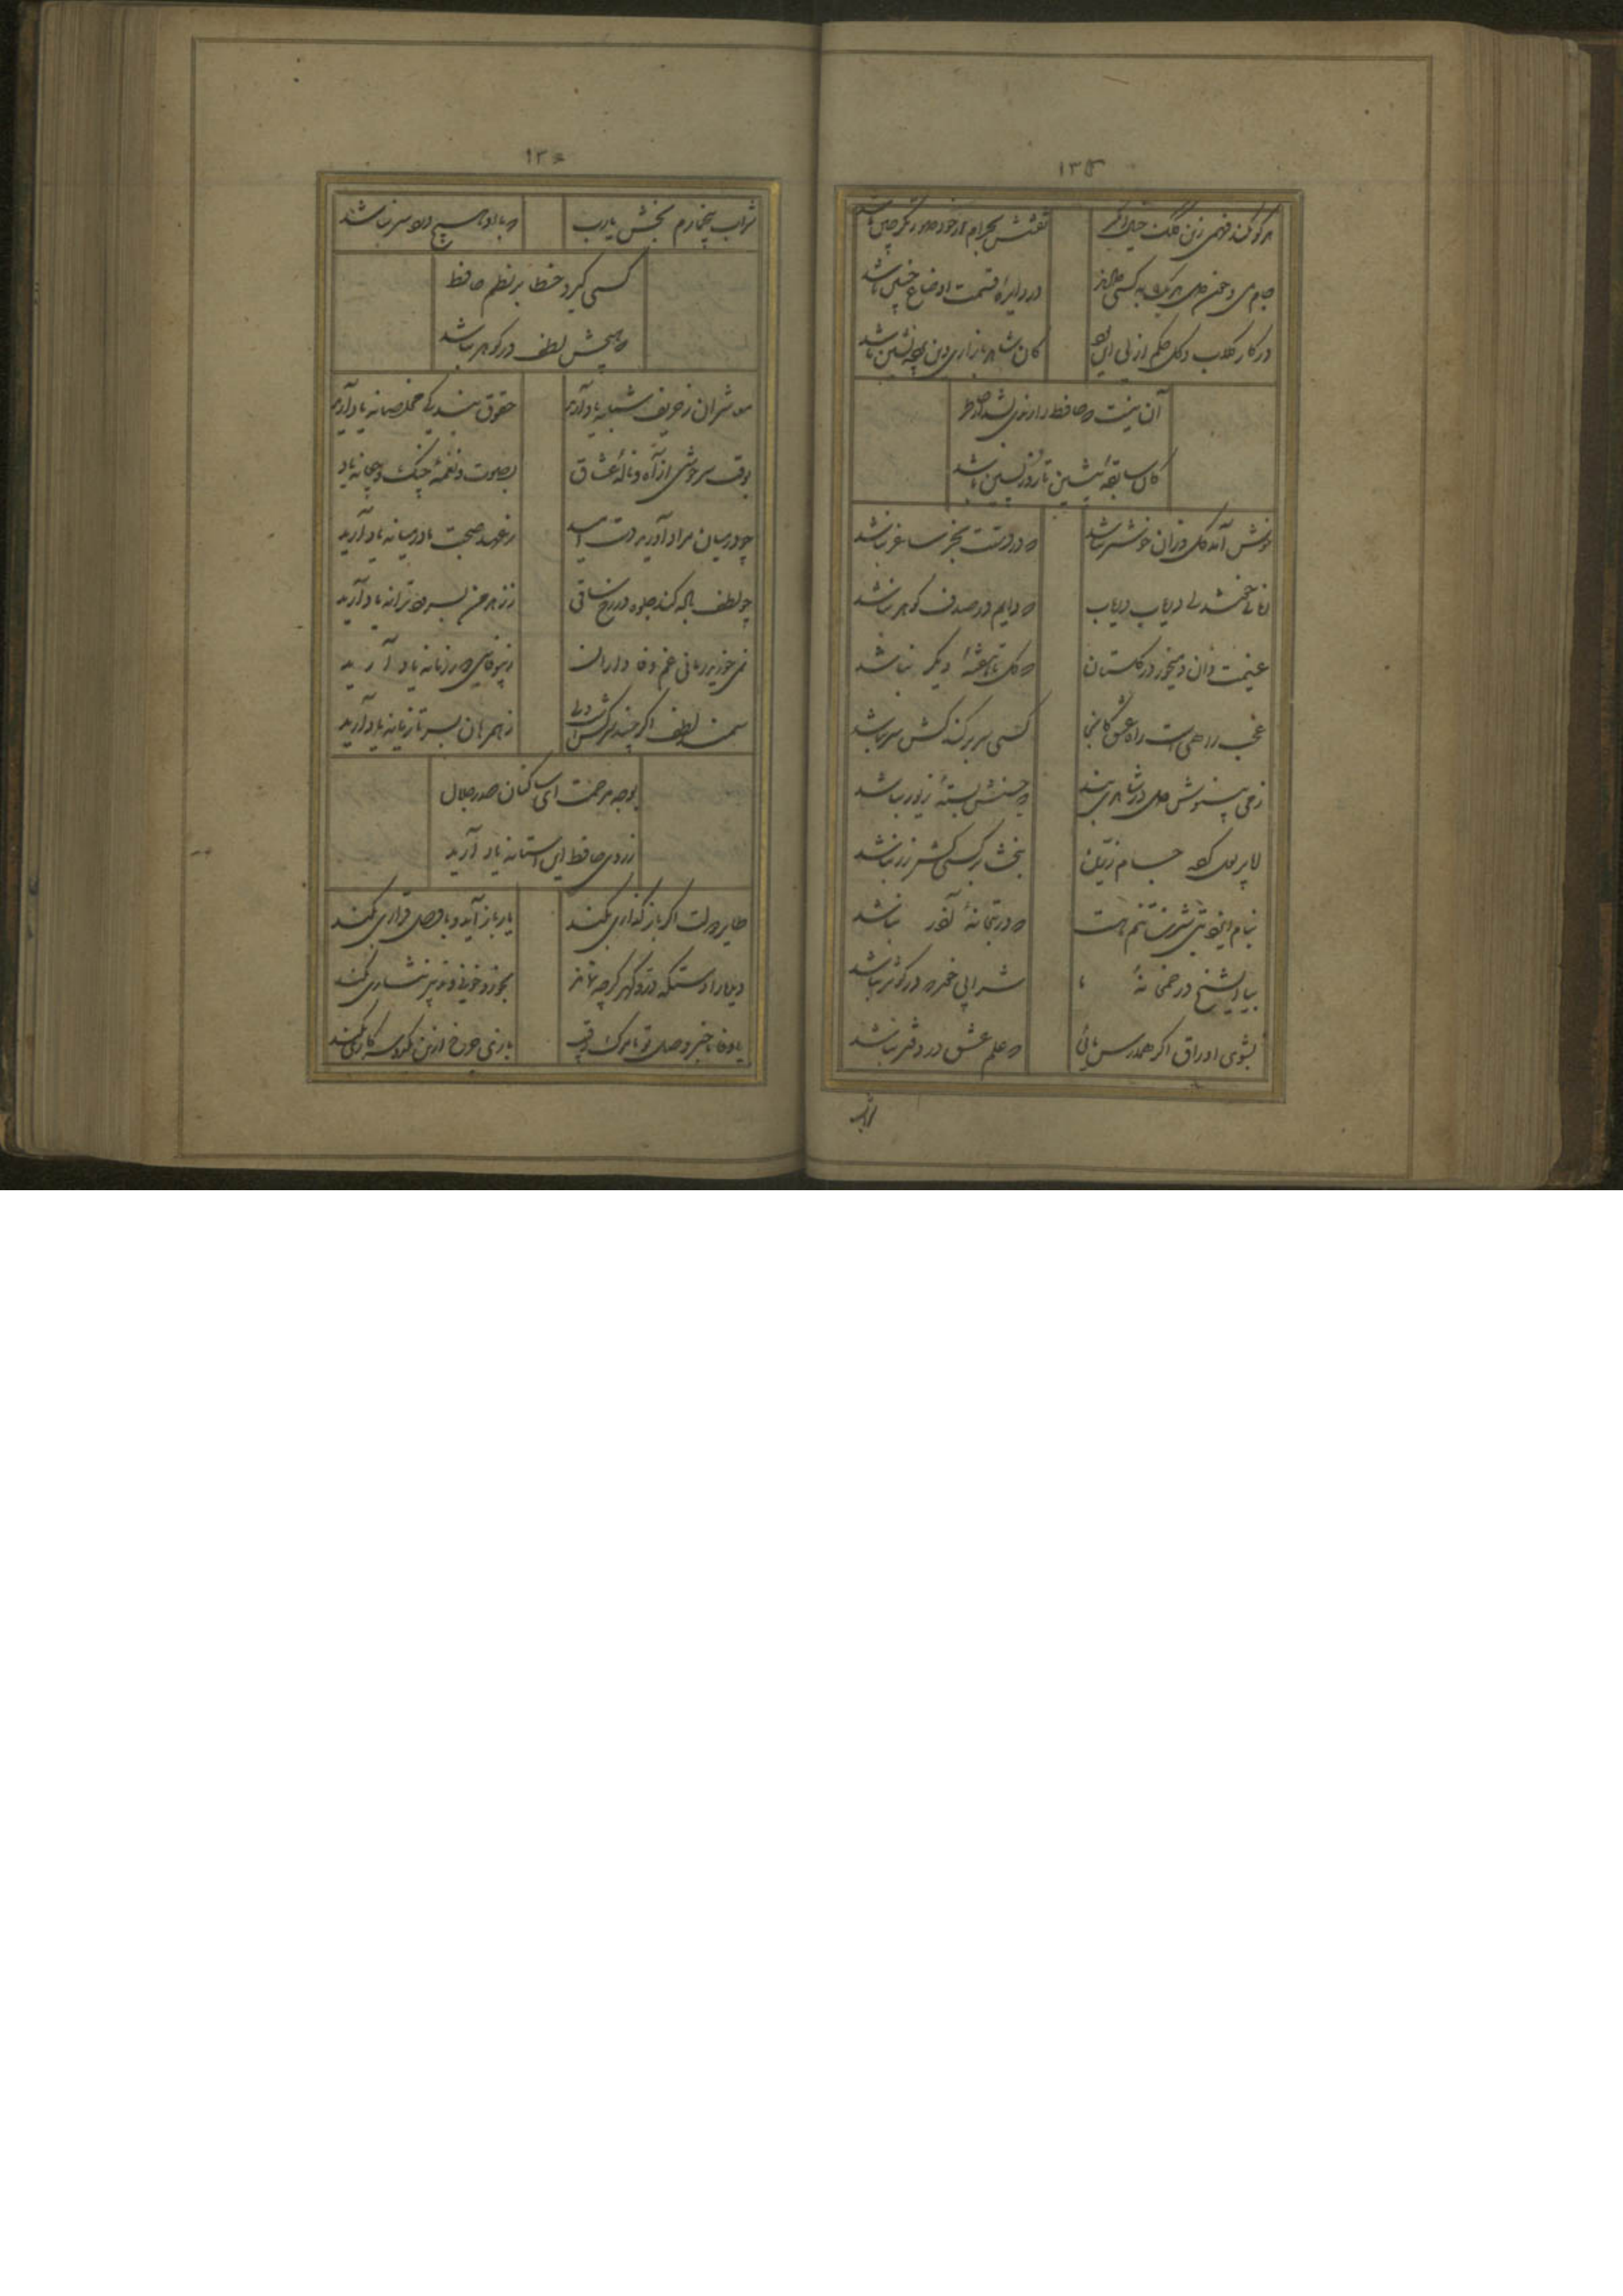 ۱۳۵
هر کو نکند فهمی زین کلک خیال انگیز نقشش بحرام ار خود صورتگر چین باشد
جام می و خون دل هر یک به کسی دادند در دایره قسمت اوضاع چنین باشد
در کار گلاب و گل حکم ازلی این بود کان شاهد بازاری وین پرده نشین باشد
آن نیست که حافظ را رندی بشد از خاطر
کان سابقه پیشین تا روز پسین باشد
خوش آمد گل وزان خوشتر نباشد که در دستت بجز ساغر نباشد
زمان خوشدلی دریاب دریاب که دایم در صدف گوهر نباشد
غنیمت دان و میخور در گلستان که گل تا هفتهٔ دیگر نباشد
عجب راهیست راه عشق کانجا کسی سر بر کند کش سر نباشد
ز من بنیوش و دل در شاهدی بند که حسنش بستهٔ زیور نباشد
ایا پر لعل کرده جام زرین ببخشا بر کسی کش زر نباشد
بنام ایزد بتی سیمین تنم هست که در بتخانهٔ آذر نباشد
بیا ای شیخ در خمخانهٔ ما شرابی خور که در کوثر نباشد
بشوی اوراق اگر همدرس مائی که علم عشق در دفتر نباشد
شراب
شراب بیخمارم بخش یارب که با او هیچ درد سر نباشد
کسی گیرد خطا بر نظم حافظ
که هیچش لطف در گوهر نباشد
معاشران ز حریف شبانه یاد آرید حقوق بندگی مخلصانه یاد آرید
بوقت سرخوشی از آه و نالهٔ عشاق بصوت و نغمهٔ چنگ و چغانه یاد
چو در میان مراد آورید دست امید ز عهد صحبت ما در میانه یاد آرید
چو لطف باده کند جلوه در رخ ساقی ز من بسرود و ترانه یاد آرید
نمی خورید زمانی غم وفاداران ز بیوفائی دور زمانه یاد آرید
سمند دولت اگر چند سرکش است ولی ز همرهان بسر تازیانه یاد آرید
بوجه مرحمت ای ساکنان صدر جلال
ز روی حافظ این آستانه یاد آرید
طایر دولت اگر باز گذاری بکند یار باز آید و با وصل قراری بکند
دیده را دستگه در و گهر گرچه نماند بخورد خونی و تدبیر نثاری بکند
یا وفا یا خبر وصل تو یا مرگ رقیب بازی چرخ ازین یک دو سه کاری بکند